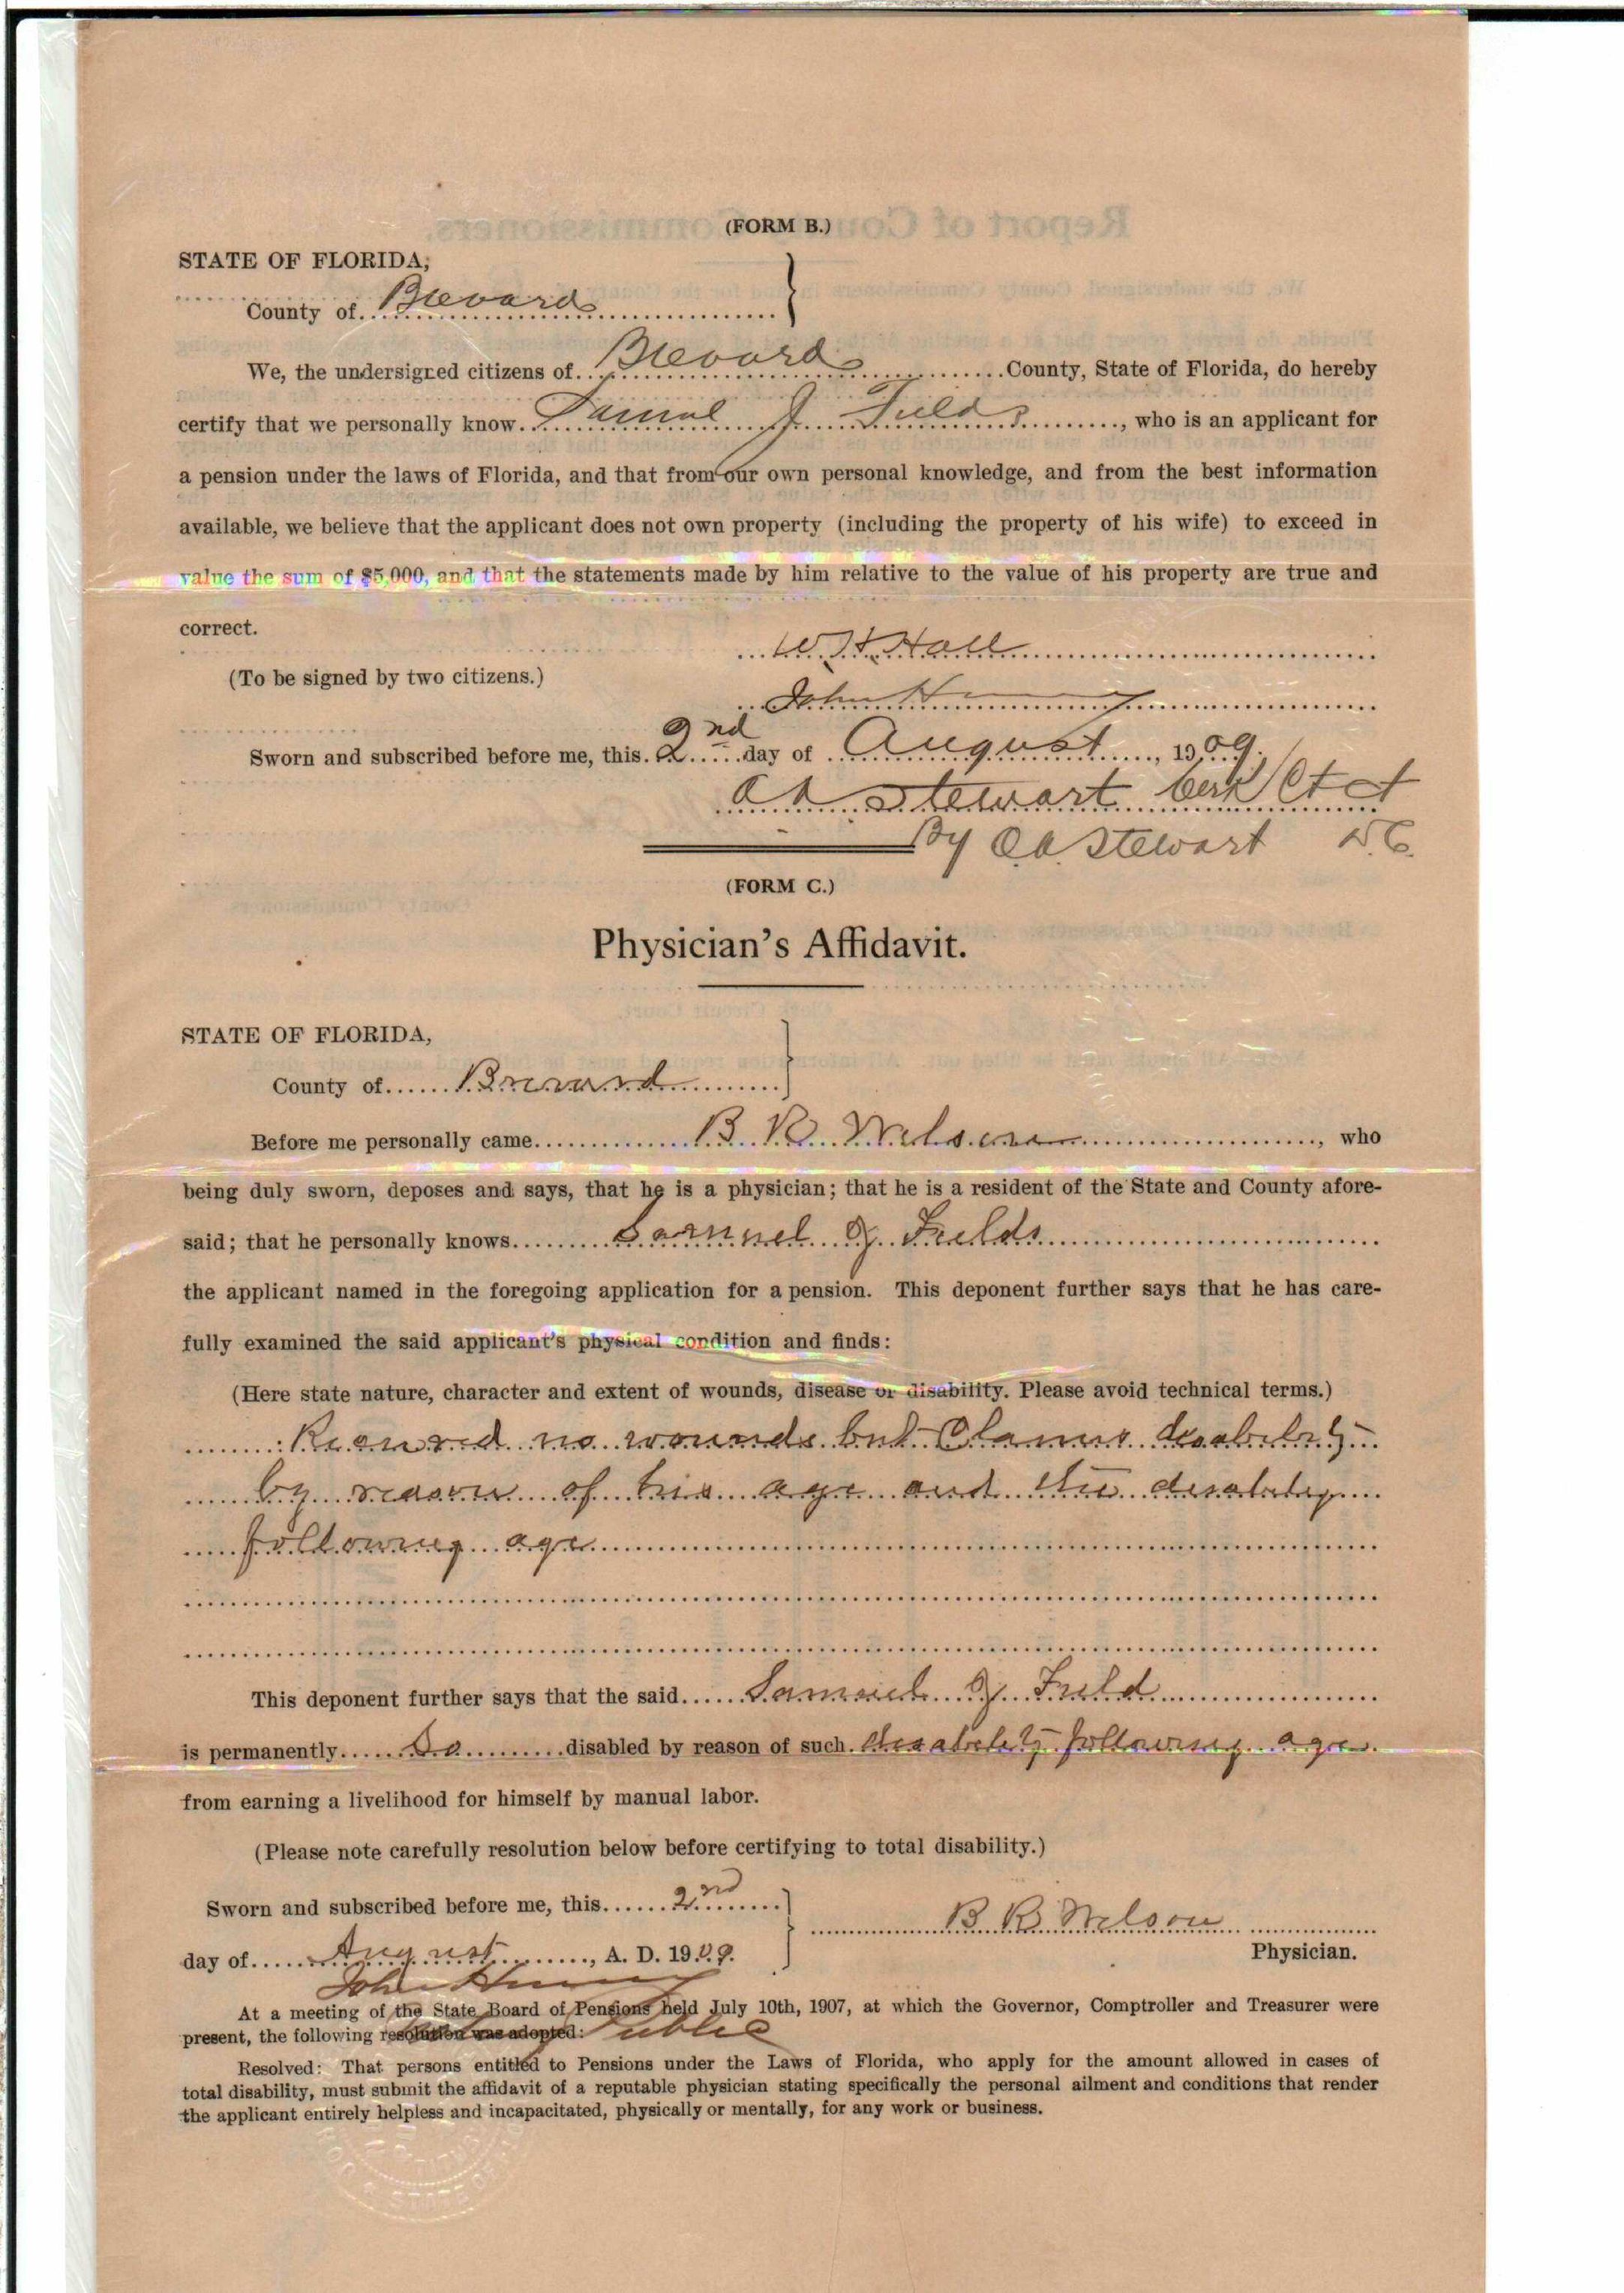 (FORM B.)
STATE OF FLORIDA,
County of Brevard
We, the undersigned citizens of Brevard County, State of Florida, do hereby
certify that we personally know Samuel J. Fields, who is an applicant for
a pension under the laws of Florida, and that from our own personal knowledge, and from the best information
available, we believe that the applicant does not own property (including the property of his wife) to exceed in
value the sum of $5,000, and that the statements made by him relative to the value of his property are true and
correct.
W. H. Hall
(To be signed by two citizens.)
John Henry
Sworn and subscribed before me, this 2nd day of August, 1909.
A A Stewart Clerk Ct Ct
By O.A. Stewart D.C.
(FORM C.)
Physician's Affidavit.
STATE OF FLORIDA,
County of Brevard
Before me personally came B R Wilson, who
being duly sworn, deposes and says, that he is a physician; that he is a resident of the State and County afore-
said; that he personally knows Samuel J. Fields
the applicant named in the foregoing application for a pension. This deponent further says that he has care-
fully examined the said applicant's physical condition and finds:
(Here state nature, character and extent of wounds, disease or disability. Please avoid technical terms.)
Received no wounds but Claims disability
by reason of his age and the disability
following age
This deponent further says that the said Samuel J. Field
is permanently so disabled by reason of such disability following age
from earning a livelihood for himself by manual labor.
(Please note carefully resolution below before certifying to total disability.)
Sworn and subscribed before me, this 2nd
B R Wilson
day of August, A. D. 1909.
Physician.
John Henry
At a meeting of the State Board of Pensions held July 10th, 1907, at which the Governor, Comptroller and Treasurer were
present, the following resolution was adopted:
Notary Public
Resolved: That persons entitled to Pensions under the Laws of Florida, who apply for the amount allowed in cases of
total disability, must submit the affidavit of a reputable physician stating specifically the personal ailment and conditions that render
the applicant entirely helpless and incapacitated, physically or mentally, for any work or business.